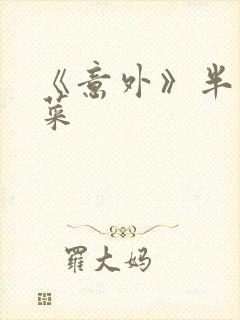 《意外》半
菜
羅大妈